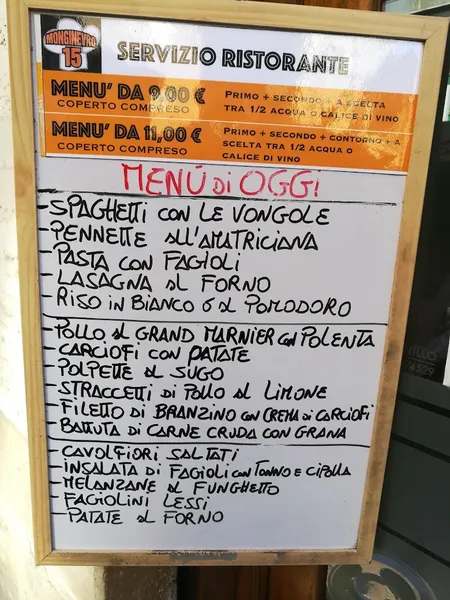 MONGINEVRO
15
SERVIZIO RISTORANTE
MENU' DA 9,00 €
COPERTO COMPRESO
PRIMO + SECONDO + A SCELTA
TRA 1/2 ACQUA O CALICE DI VINO
MENU' DA 11,00 €
COPERTO COMPRESO
PRIMO + SECONDO + CONTORNO + A
SCELTA TRA 1/2 ACQUA O
CALICE DI VINO
MENÙ DI OGGI
- SPAGHETTI CON LE VONGOLE
- PENNETTE ALL'AMATRICIANA
- PASTA CON FAGIOLI
- LASAGNA AL FORNO
- RISO IN BIANCO O AL POMODORO
- POLLO AL GRAND MARNIER CON POLENTA
- CARCIOFI CON PATATE
- POLPETTE AL SUGO
- STRACCETTI DI POLLO AL LIMONE
- FILETTO DI BRANZINO CON CREMA DI CARCIOFI
- BATTUTA DI CARNE CRUDA CON GRANA
- CAVOLFIORI SALTATI
- INSALATA DI FAGIOLI CON TONNO E CIPOLLA
- MELANZANE AL FUNGHETTO
- FAGIOLINI LESSI
- PATATE AL FORNO